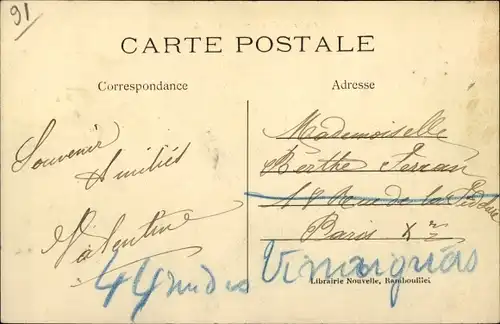 91
CARTE POSTALE
Correspondance
Adresse
Souvenir
Amitiés
Valentine
Mademoiselle
Berthe
Rue de la
Paris X
44 rue des Vinaigriers
Librairie Nouvelle, Rambouillet